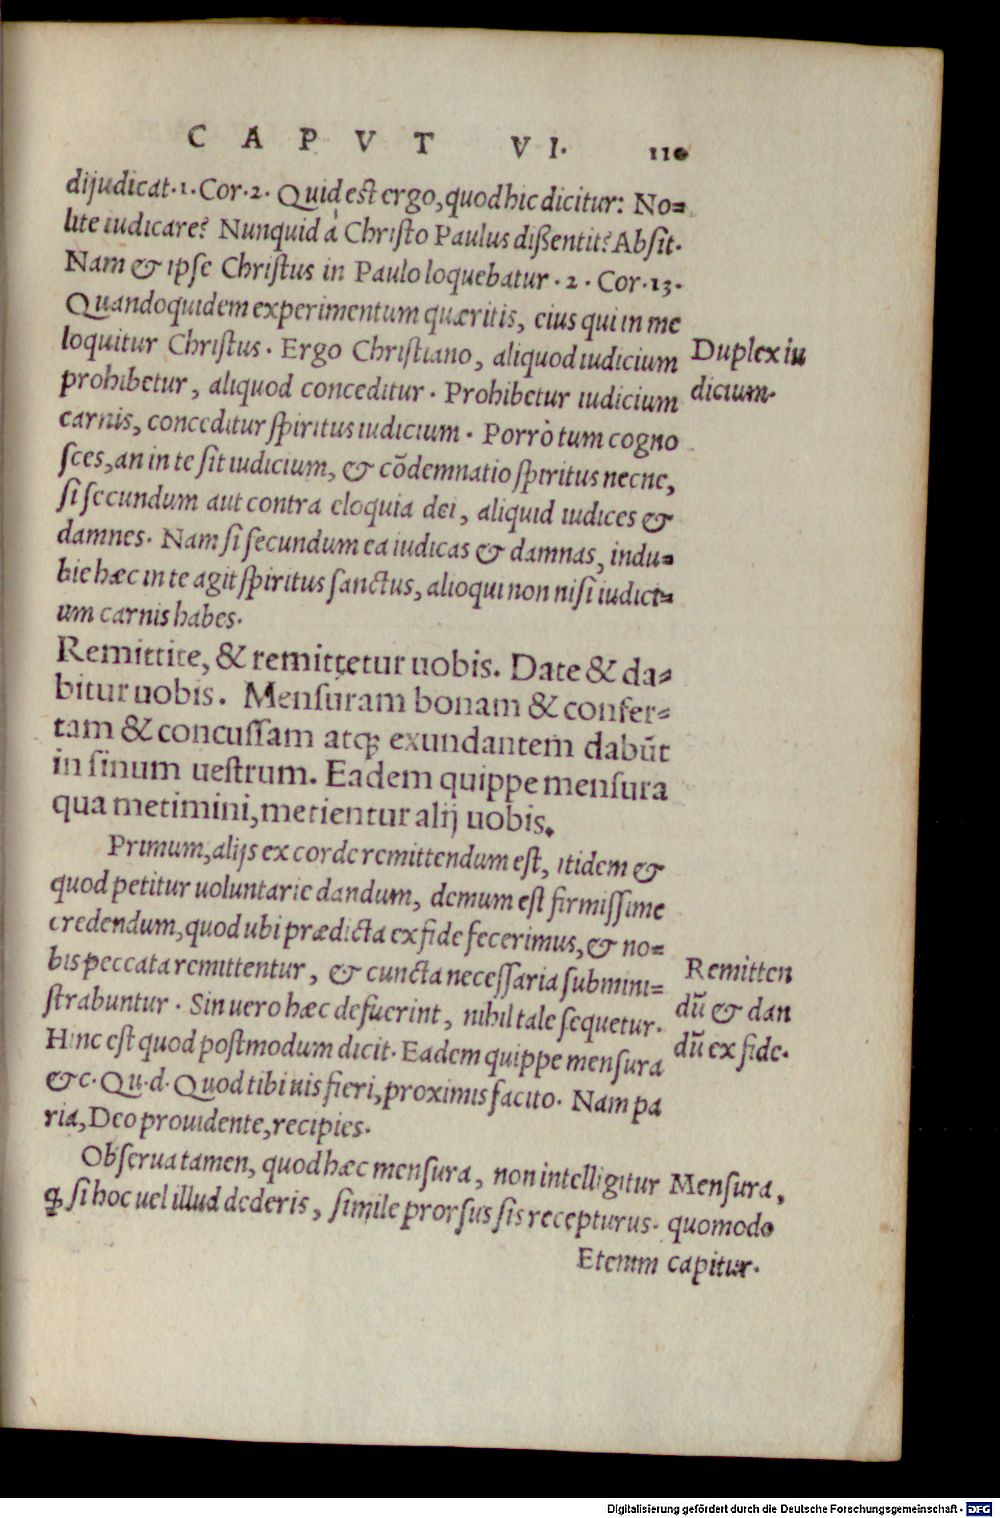 CAPVT VI. 110
dijudicat. 1. Cor. 2. Quid est ergo, quod hic dicitur: No=
lite iudicare? Nunquid à Christo Paulus dißentit? Absit.
Nam & ipse Christus in Paulo loquebatur. 2. Cor. 13.
Quandoquidem experimentum quæritis, eius qui in me
loquitur Christus. Ergo Christiano, aliquod iudicium
prohibetur, aliquod conceditur. Prohibetur iudicium
carnis, conceditur spiritus iudicium. Porrò tum cogno
sces, an in te sit iudicium, & cōdemnatio spiritus necne,
si secundum aut contra eloquia dei, aliquid iudices &
damnes. Nam si secundum ea iudicas & damnas, indu=
bie hæc in te agit spiritus sanctus, alioqui non nisi iudici=
um carnis habes.
Duplex iu
dicium.
Remittite, & remittetur uobis. Date & da=
bitur uobis. Mensuram bonam & confer=
tam & concussam atqꝫ exundantem dabūt
in sinum uestrum. Eadem quippe mensura
qua metimini, metientur alij uobis.
Primum, alijs ex corde remittendum est, itidem &
quod petitur uoluntarie dandum, demum est firmissime
credendum, quod ubi prædicta ex fide fecerimus, & no=
bis peccata remittentur, & cuncta necessaria submini=
strabuntur. Sin uero hæc defuerint, nihil tale sequetur.
Hinc est quod postmodum dicit. Eadem quippe mensura
&c. Qu. d. Quod tibi uis fieri, proximis facito. Nam pa
ria, Deo prouidente, recipies.
Remitten
dū & dan
dū ex fide.
Obserua tamen, quod hæc mensura, non intelligitur
ꝙ si hoc uel illud dederis, simile prorsus sis recepturus.
Etenim
Mensura,
quomodo
capitur.
Digitalisierung gefördert durch die Deutsche Forschungsgemeinschaft - DFG